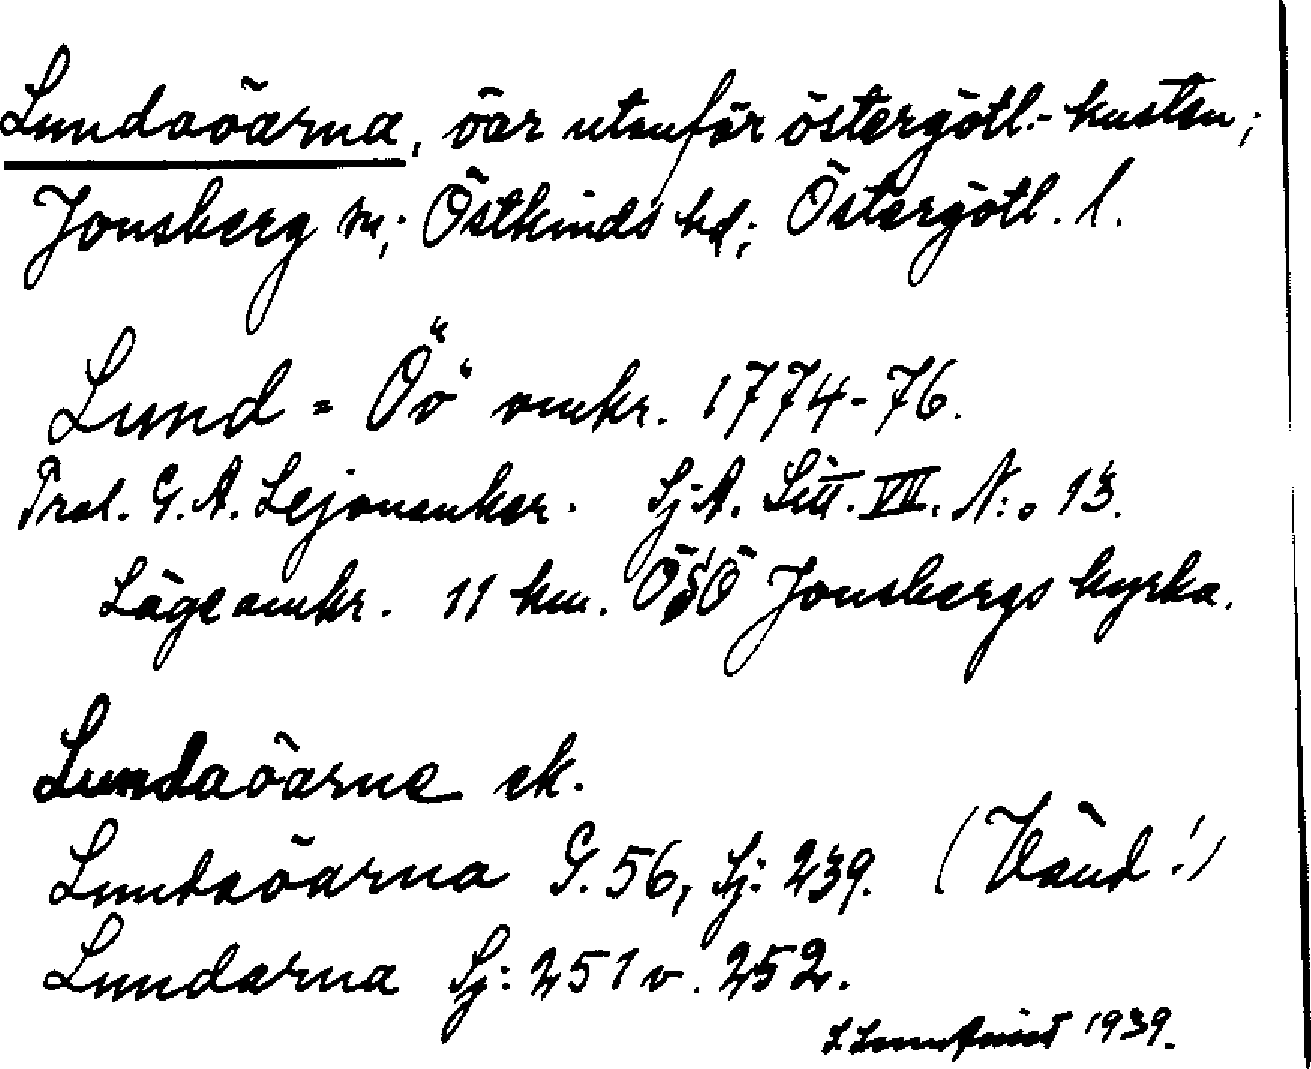 Lundaöarna, öar utanför östergötl.-kusten;
Jonsberg sn; Östkinds hd; Östergötl. l.
Lund = Öö omkr. 1774-76.
G. A. Lejonanker. Sj. A. Litt. VII. N:o 13.
Läge omkr. 11 km. ÖSÖ Jonsbergs kyrka.
Lundaöarne ek.
Lundaöarna G. 56, Sj: 239. (Vänd!)
Lundarna Sj: 251 v. 252.
1939.